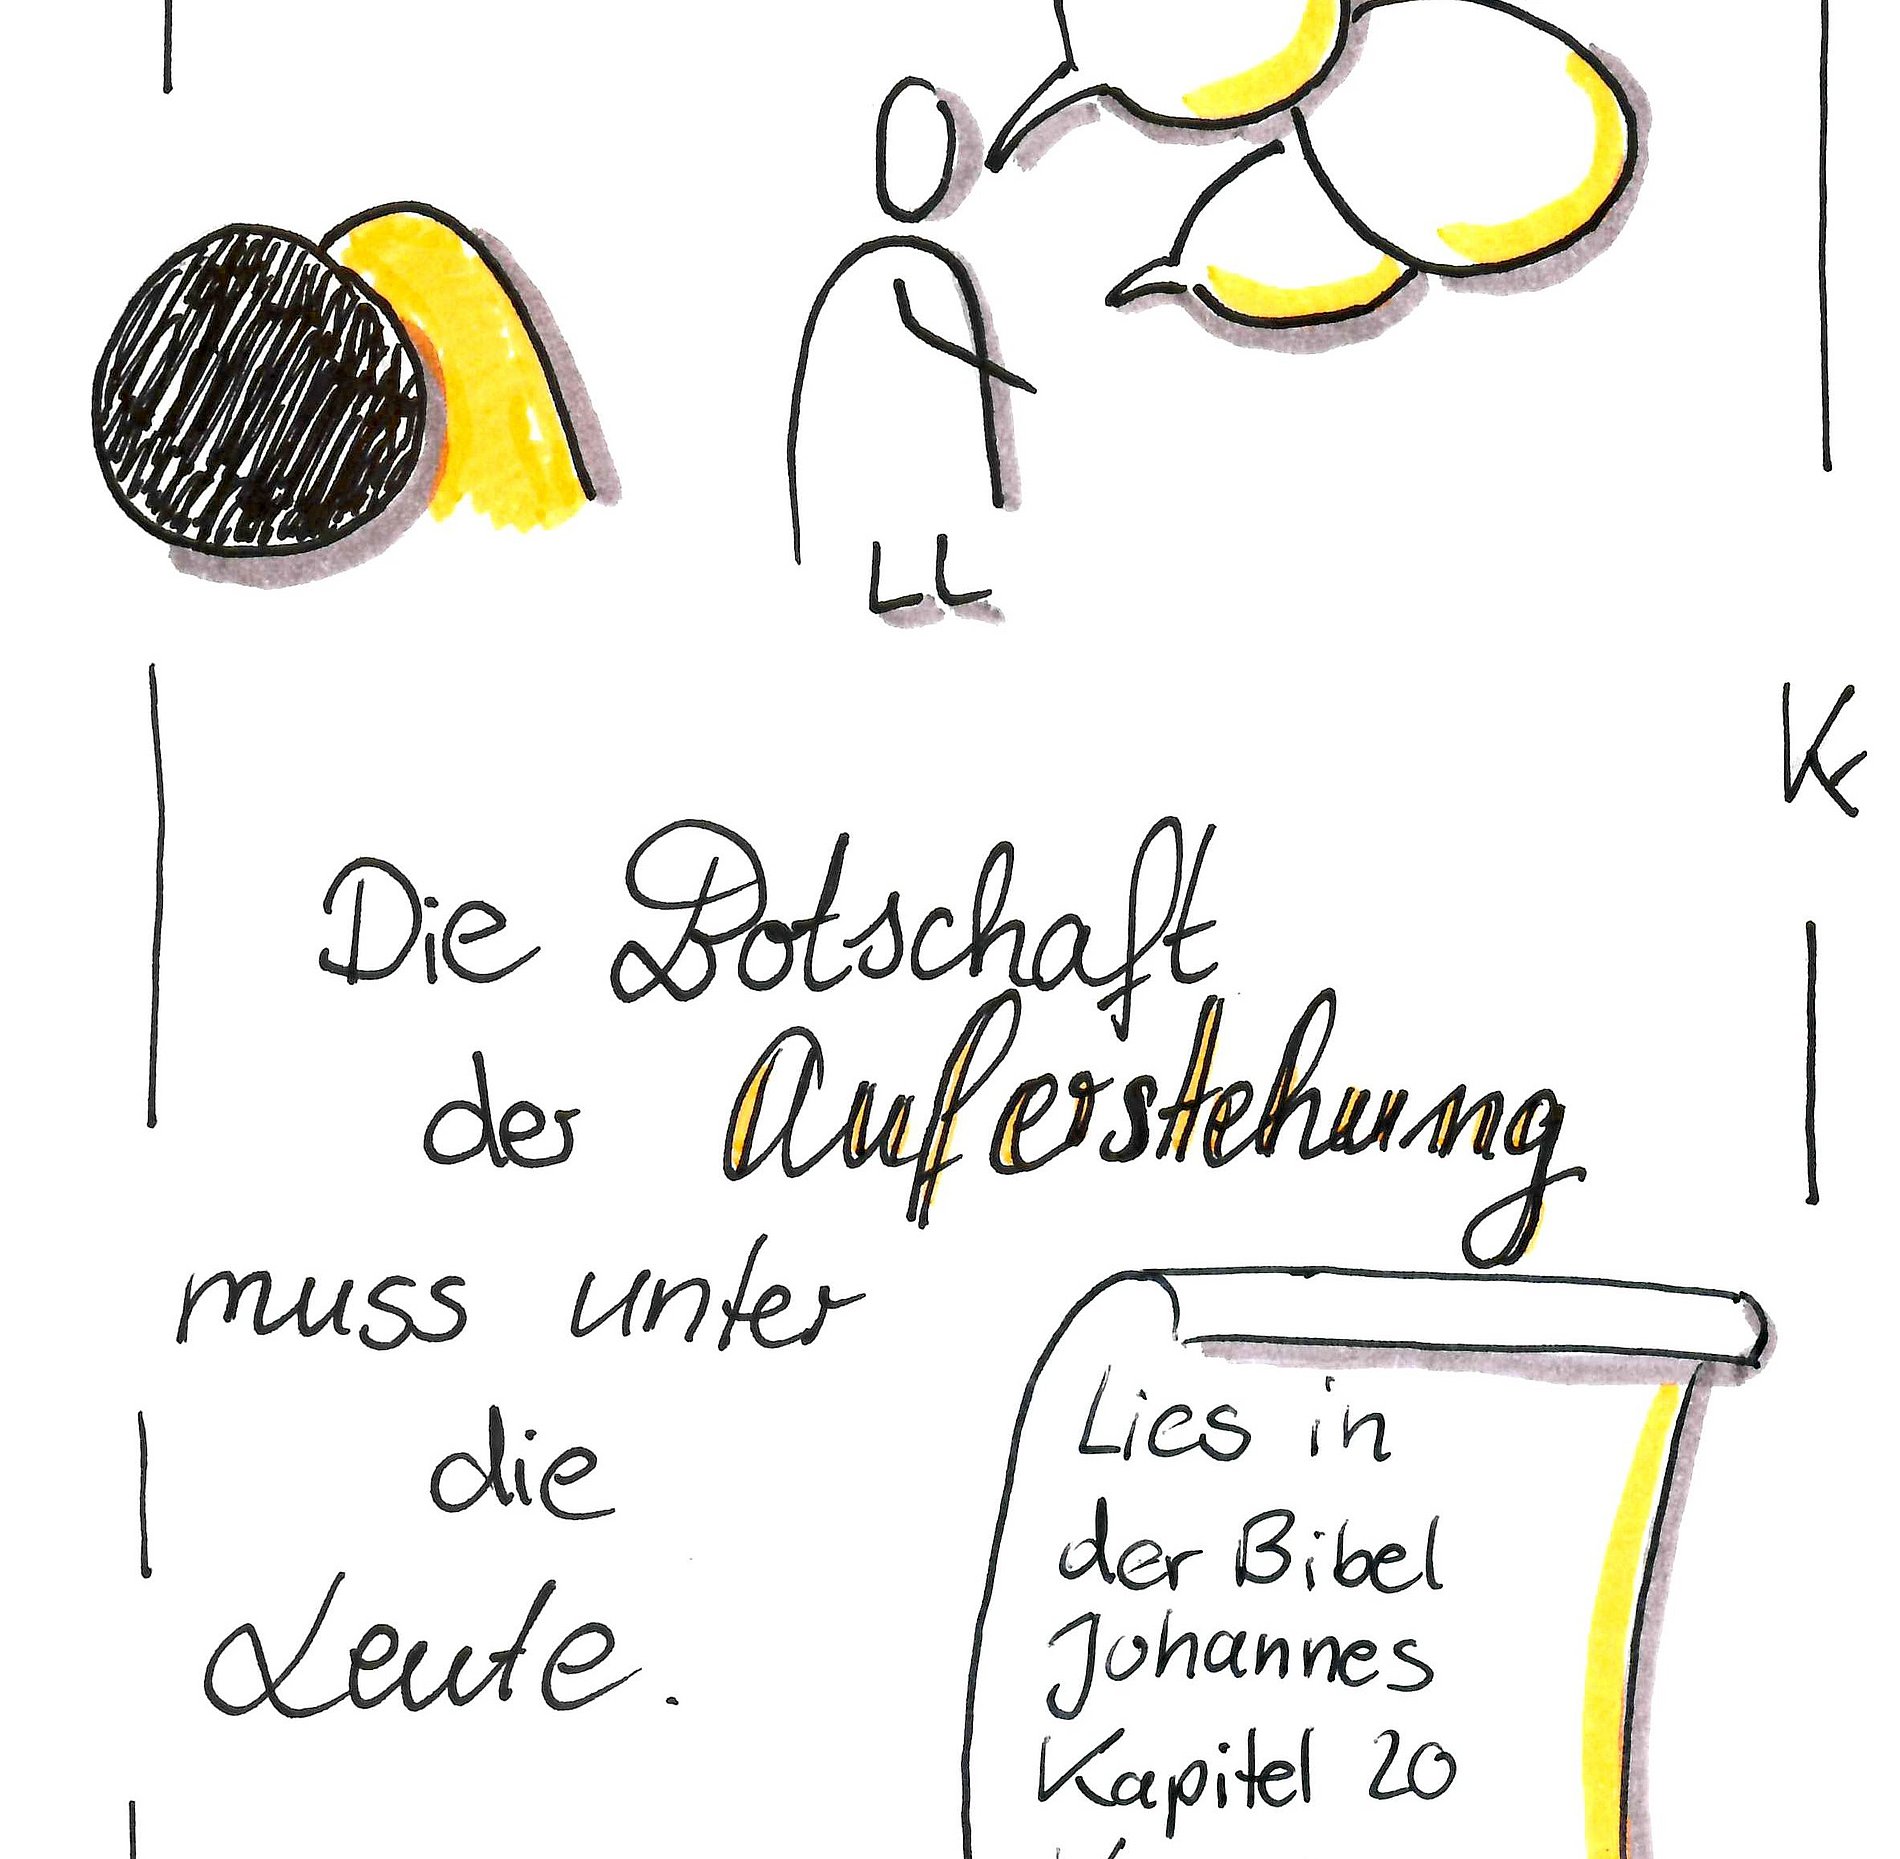 Die Botschaft
der Auferstehung
muss unter
die
Leute.
Lies in
der Bibel
Johannes
Kapitel 20